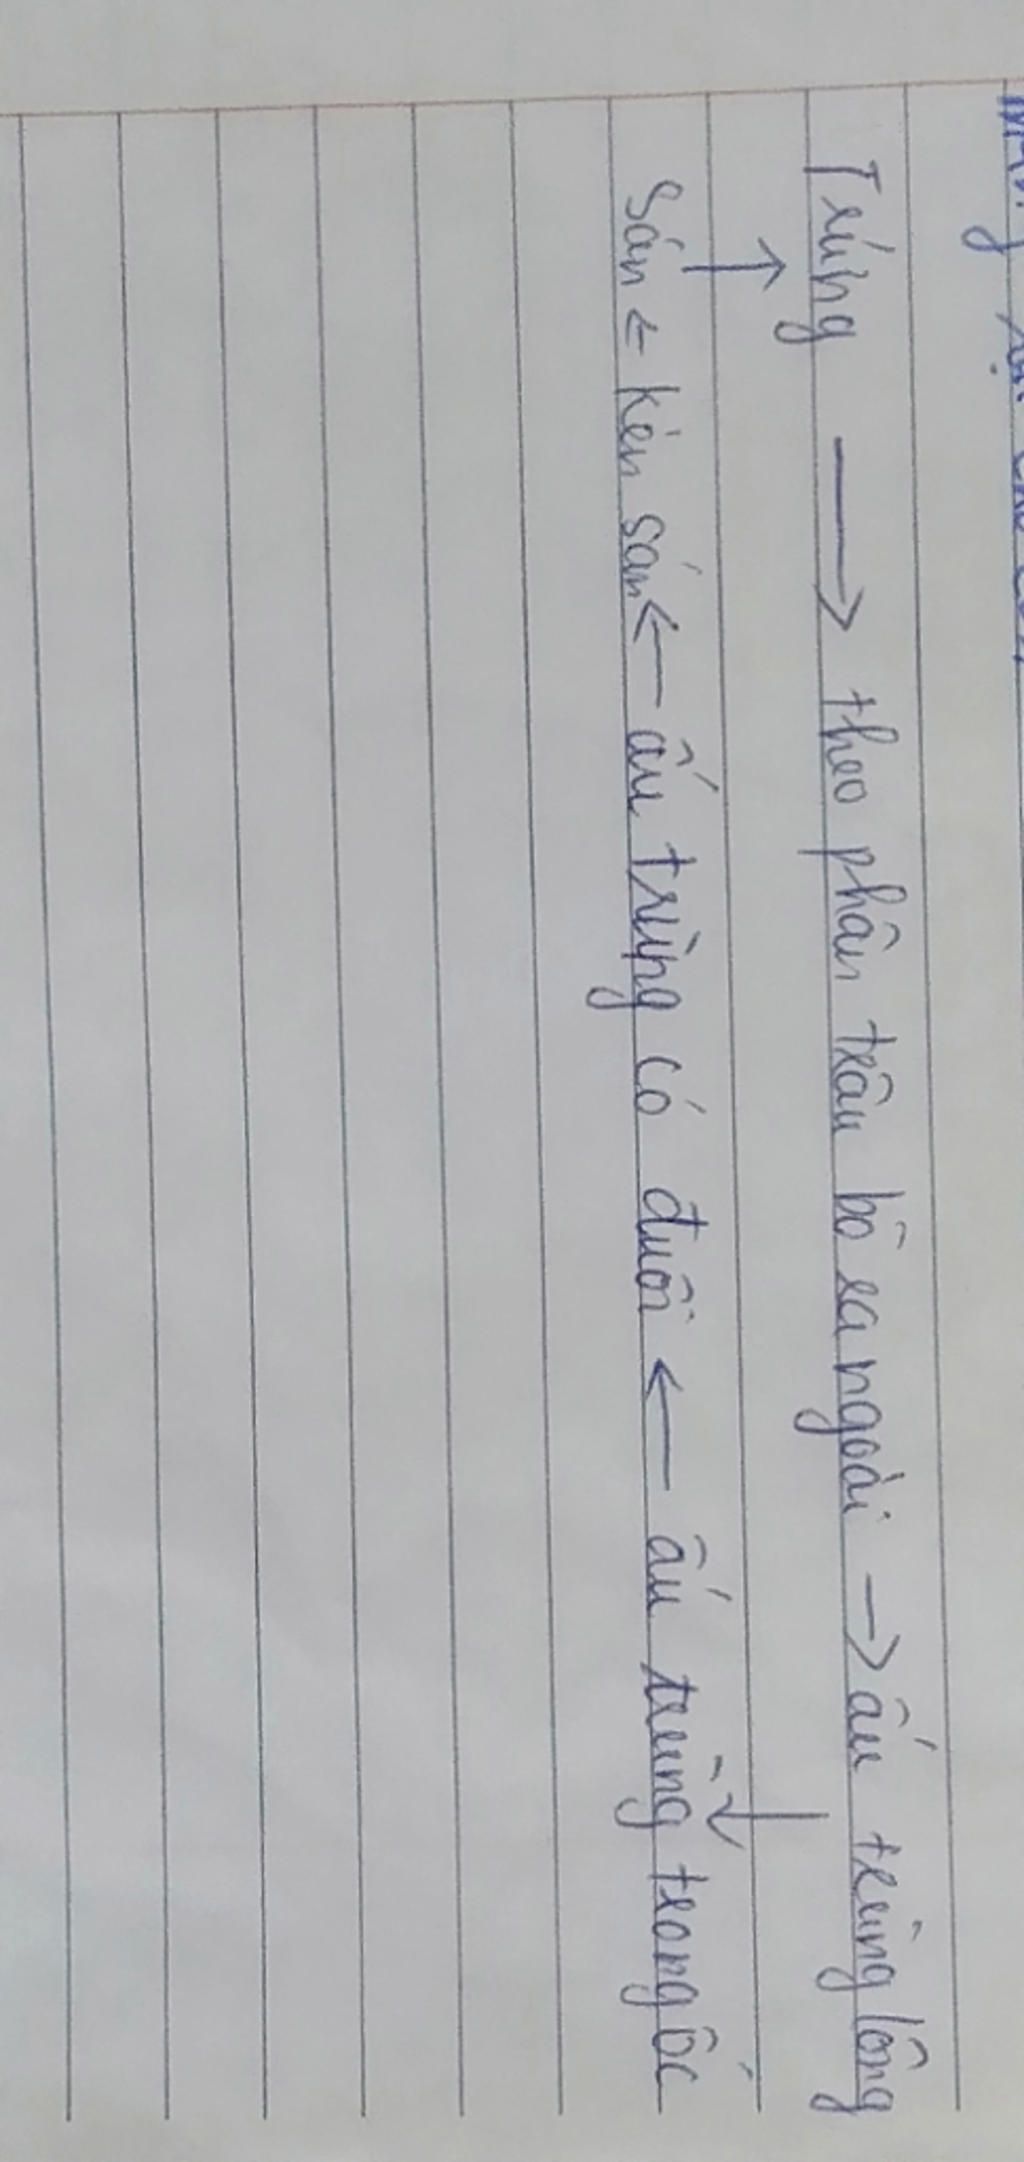 Trứng → theo phân trâu bò ra ngoài → ấu trùng lông
↑ ↓
Sán ← kén sán ← ấu trùng có đuôi ← ấu trùng trong ốc